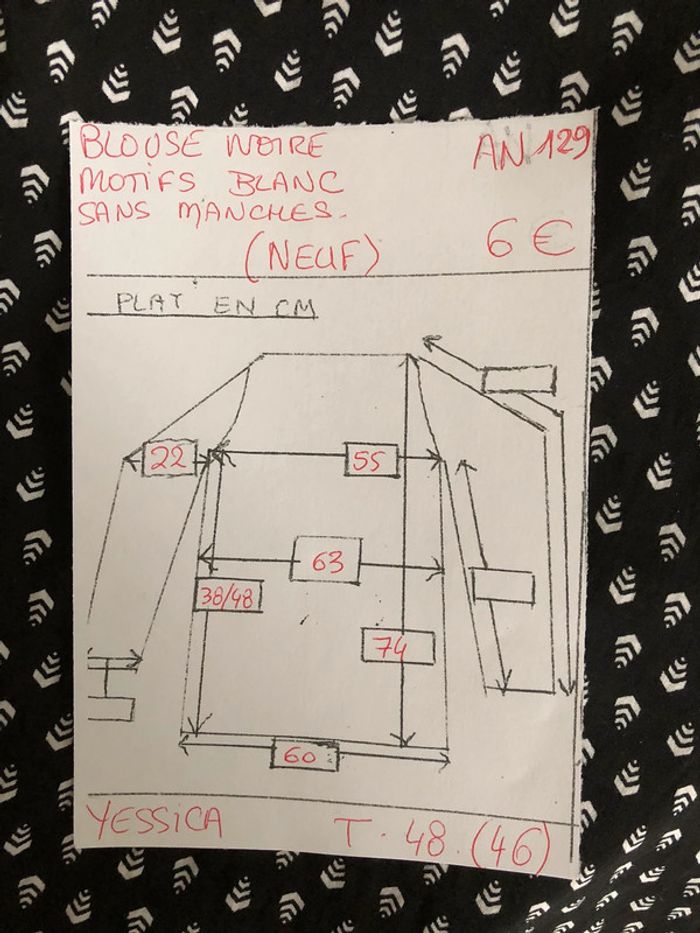 BLOUSE NOIRE
AN 129
MOTIFS BLANC
SANS MANCHES.
(NEUF)
6 €
PLAT EN CM
22
55
63
38/48
74
60
YESSICA
T. 48. (46)